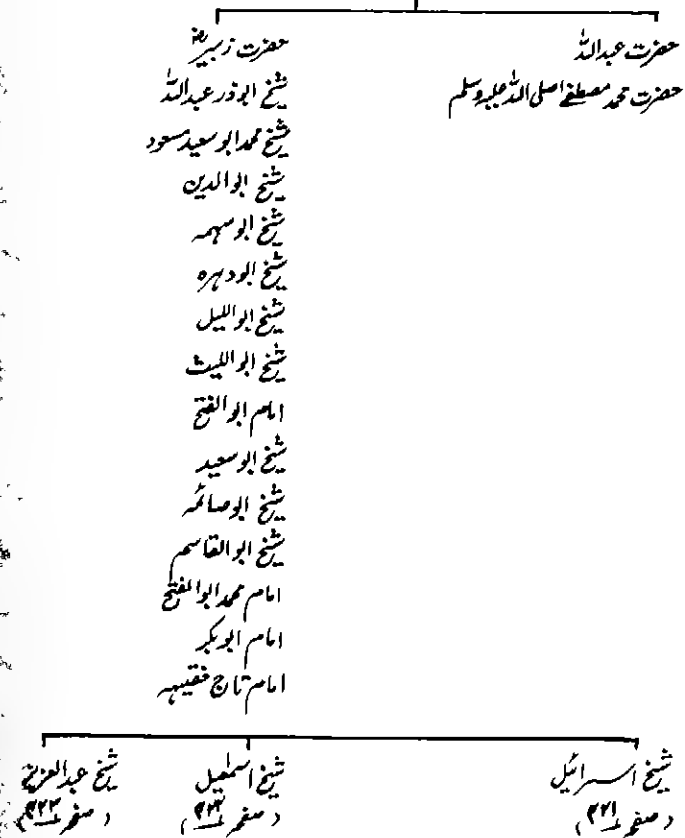 حضرت عبداللہ
حضرت محمد مصطفےٰ صلی اللہ علیہ وسلم
حضرت زبیرؓ
شیخ ابوذر عبداللہ
شیخ محمد ابو سعید مسعود
شیخ ابوالدین
شیخ ابو سہمہ
شیخ ابودہرہ
شیخ ابواللیل
شیخ ابواللیث
امام ابوالفتح
شیخ ابوسعید
شیخ ابوصائمہ
شیخ ابوالقاسم
امام محمد ابوالفتح
امام ابوبکر
امام تاج فقیہہ
شیخ اسرائیل
(صفحہ ۲۲۱)
شیخ اسمٰعیل
(صفحہ)
شیخ عبدالعزیز
(صفحہ)